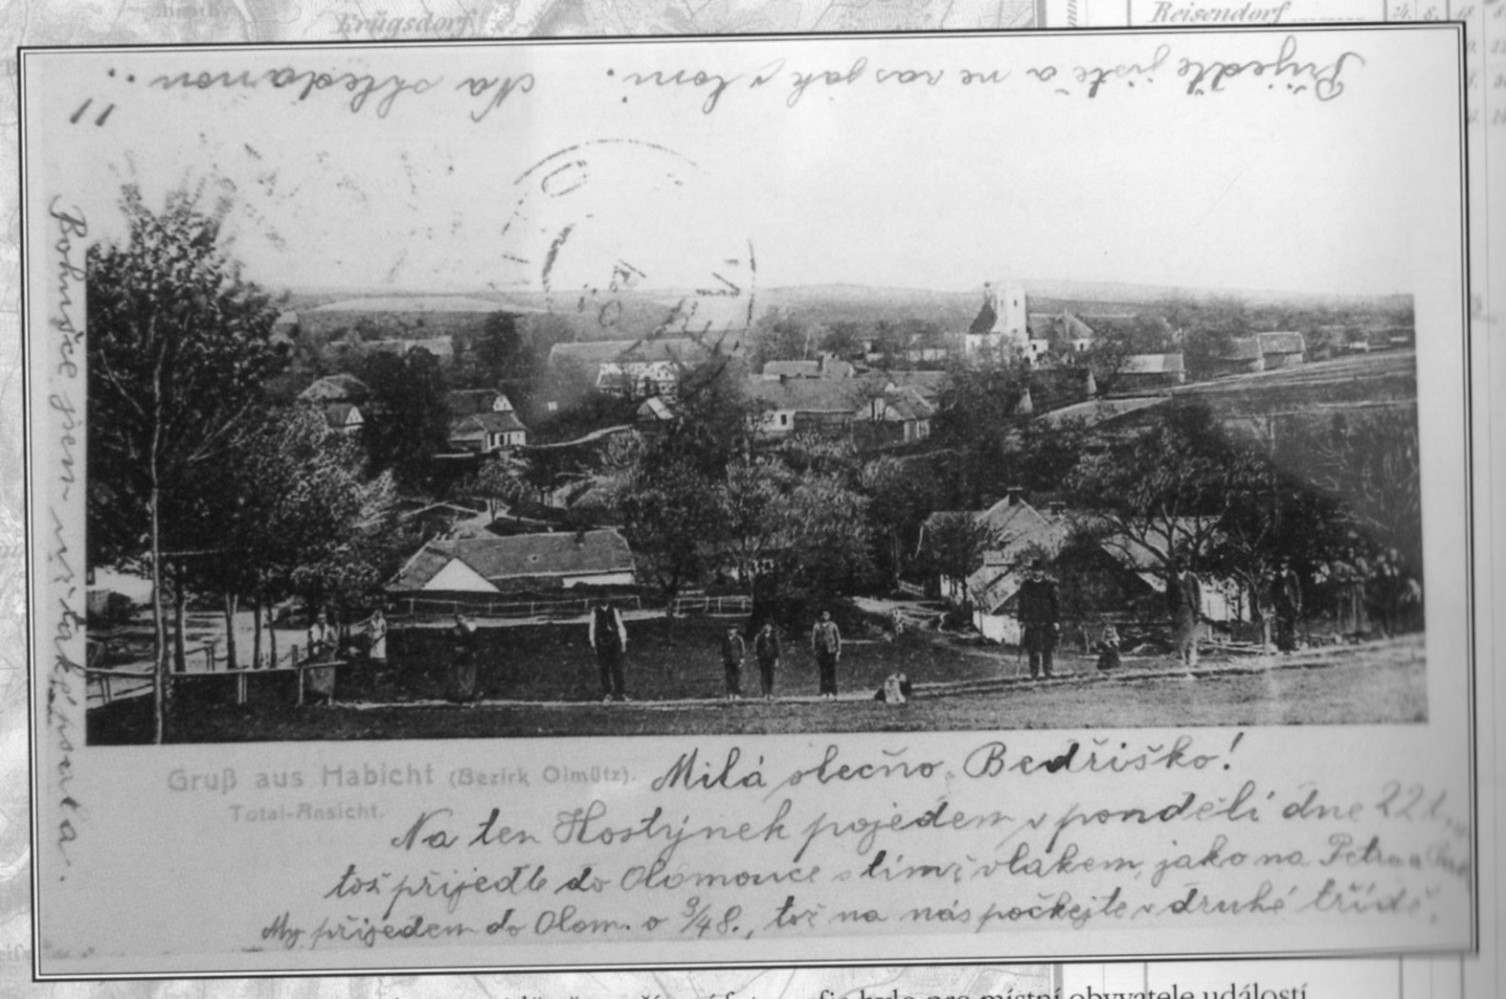 Krügsdorf
Reisendorf
Přijeďte jistě a ne zas jak v loni. Na shledanou..
Bohuňce jsem už také psala.
Gruß aus Habicht (Bezirk Olmütz).
Total-Ansicht.
Milá slečno Bedřiško!
Na ten Hostýnek pojedem v pondělí dne 22
tož přijeďte do Olomouce s tímž vlakem, jako na Petra a
My přijedem do Olom. o 3/4 8., tož na nás počkejte v druhé třídě.
bylo pro místní obyvatele událostí